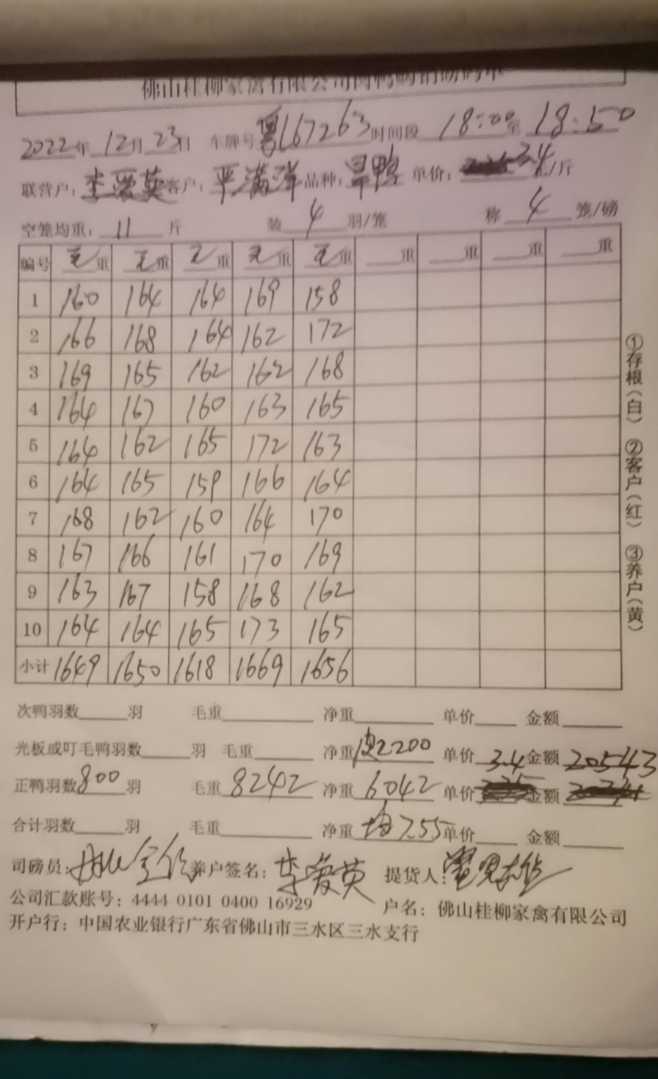 佛山桂柳家禽有限公司
2022年12月23日 车牌号 粤L67263 时间段 18:00至18:50
联营户: 李爱英 客户: 平满洋 品种: 旱鸭 单价: 3.4/斤
空笼均重: 11 斤 装 4 羽/笼 称 4 笼/磅
编号 毛重 毛重 毛重 毛重 毛重 重 重 重 重
1 160 164 164 169 158
2 166 168 164 162 172
3 169 165 162 162 168
4 164 167 160 163 165
5 164 162 165 172 163
6 164 165 159 166 164
7 168 162 160 164 170
8 167 166 161 170 169
9 163 167 158 168 162
10 164 164 165 173 165
小计 1649 1650 1618 1669 1656
①存根(白) ②客户(红) ③养户(黄)
次鸭羽数 羽 毛重 净重 单价 金额
光板或叮毛鸭羽数 羽 毛重 净重 皮2200 单价 3.4 金额 20543
正鸭羽数 800 羽 毛重 8242 净重 6042 单价 金额
合计羽数 羽 毛重 净重 均7.55 单价 金额
司磅员: 养户签名: 李爱英 提货人:
公司汇款账号: 4444 0101 0400 16929 户名: 佛山桂柳家禽有限公司
开户行: 中国农业银行广东省佛山市三水区三水支行